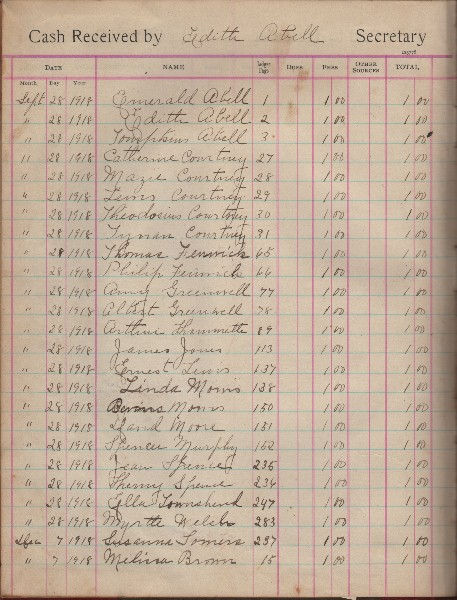 Cash Received by Edith Abell Secretary
DATE NAME Ledger Page DUES FEES OTHER SOURCES TOTAL
Month Day Year
Sept 28 1918 Emerald Abell 1 1 00 1 00
" 28 1918 Edith Abell 2 1 00 1 00
" 28 1918 Tompkins Abell 3 1 00 1 00
" 28 1918 Catherine Courtney 27 1 00 1 00
" 28 1918 Mazie Courtney 28 1 00 1 00
" 28 1918 Lewis Courtney 29 1 00 1 00
" 28 1918 Theodosius Courtney 30 1 00 1 00
" 28 1918 Tynan Courtney 31 1 00 1 00
" 28 1918 Thomas Fenwick 65 1 00 1 00
" 28 1918 Philip Fenwick 66 1 00 1 00
" 28 1918 Greenwell 77 1 00 1 00
" 28 1918 Albert Greenwell 78 1 00 1 00
" 28 1918 Arthur 89 1 00 1 00
" 28 1918 James Jones 113 1 00 1 00
" 28 1918 Ernest Lewis 137 1 00 1 00
" 28 1918 Linda Morris 138 1 00 1 00
" 28 1918 Morris 150 1 00 1 00
" 28 1918 Moore 151 1 00 1 00
" 28 1918 Spencer Murphy 152 1 00 1 00
" 28 1918 Jean Spence 235 1 00 1 00
" 28 1918 Spence 236 1 00 1 00
" 28 1918 Ella Townshend 247 1 00 1 00
" 28 1918 Myrtle Welch 283 1 00 1 00
7 1918 Susanna Somers 237 1 00 1 00
" 7 1918 Melissa Brown 15 1 00 1 00